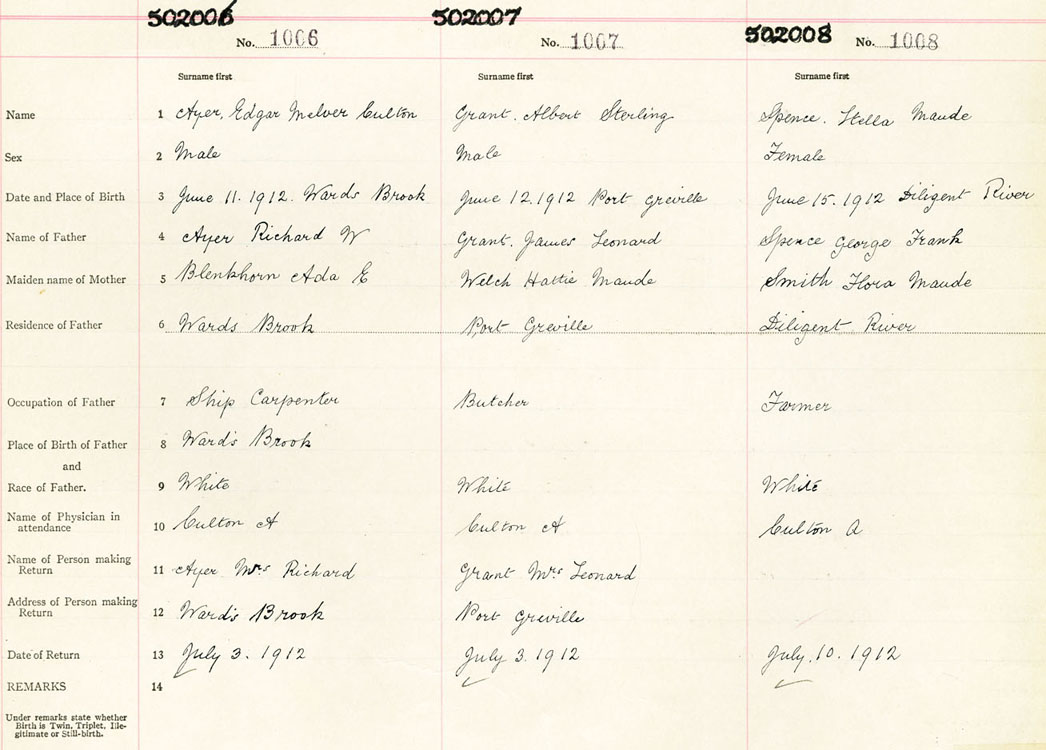 502006 502007 502008
No. 1006 No. 1007 No. 1008
Surname first Surname first Surname first
Name 1 Ayer, Edgar McIver Culton Grant. Albert Sterling Spence. Stella Maude
Sex 2 Male Male Female
Date and Place of Birth 3 June 11. 1912. Wards Brook June 12. 1912 Port Greville June 15. 1912 Diligent River
Name of Father 4 Ayer Richard W Grant. James Leonard Spence George Frank
Maiden name of Mother 5 Blenkhorn Ada E Welch Hattie Maude Smith Flora Maude
Residence of Father 6 Wards Brook Port Greville Diligent River
Occupation of Father 7 Ship Carpenter Butcher Farmer
Place of Birth of Father 8 Ward's Brook
and
Race of Father. 9 White White White
Name of Physician in
attendance 10 Culton A Culton A Culton A
Name of Person making
Return 11 Ayer Mrs Richard Grant Mrs Leonard
Address of Person making
Return 12 Ward's Brook Port Greville
Date of Return 13 July 3. 1912 July 3. 1912 July. 10. 1912
REMARKS 14
Under remarks state whether
Birth is Twin, Triplet, Ille-
gitimate or Still-birth.